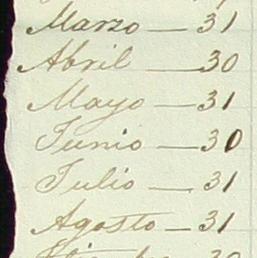 Marzo — 31
Abril — 30
Mayo — 31
Junio — 30
Julio — 31
Agosto — 31
30